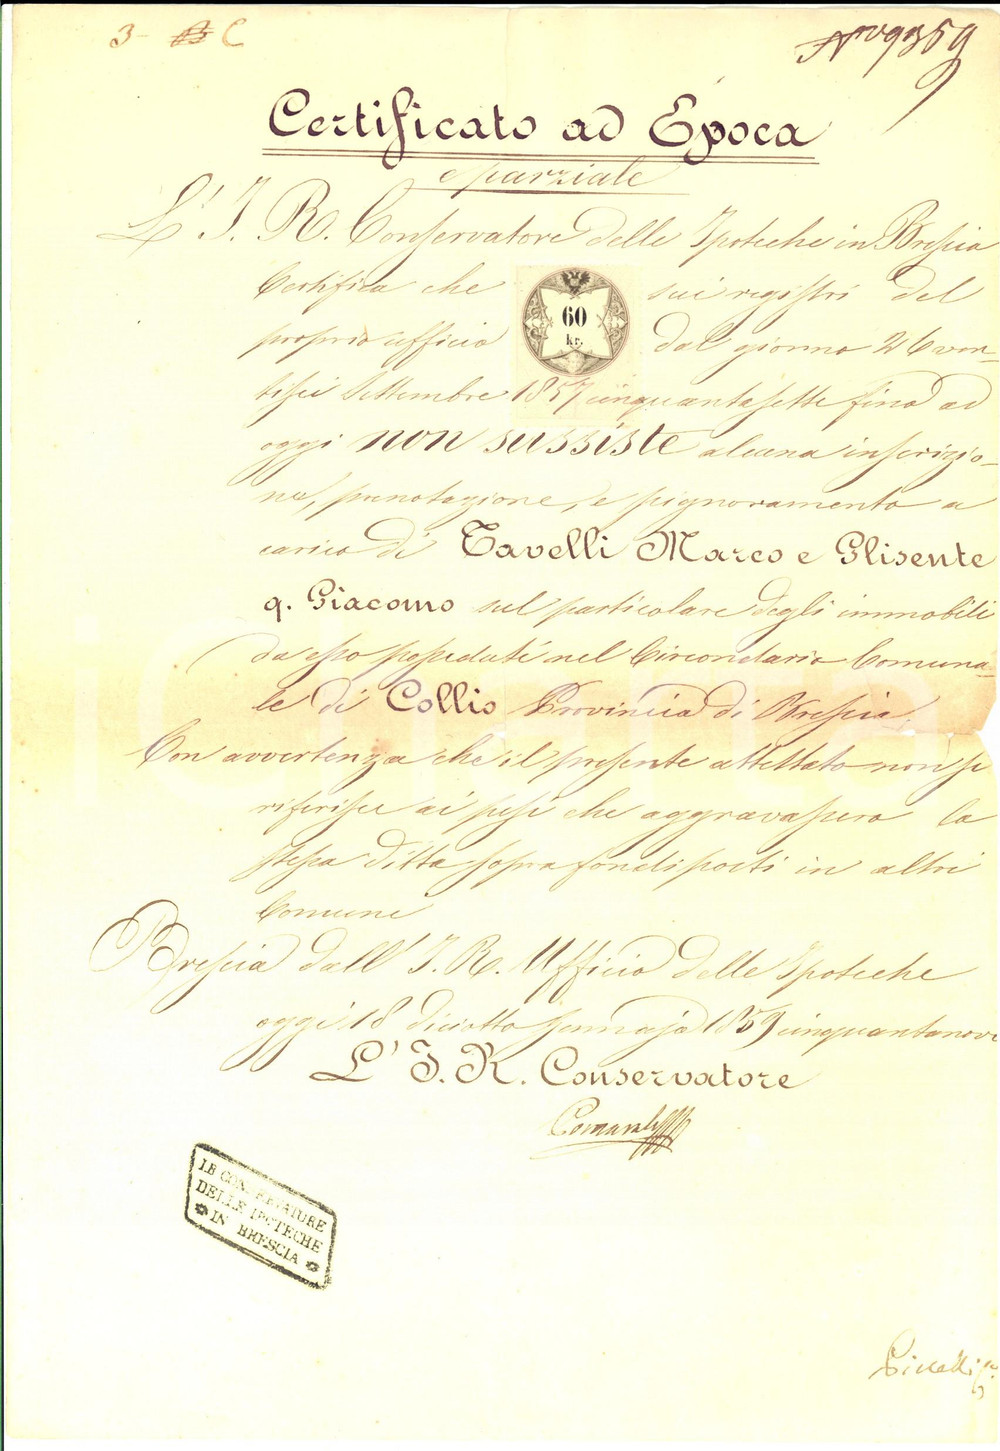 3 - B C
N.ro 9359
Certificato ad Epoca
e parziale
L' I. R. Conservatore delle Ipoteche in Brescia
Certifica che sui registri del
60
kr.
proprio ufficio dal giorno 26 ven-
tisei Settembre 1857 cinquantasette fino ad
oggi non sussiste alcuna inscrizio-
ne, prenotazione, e pignoramento a
carico di Tavelli Marco e Glisente
q. Giacomo sul particolare degli immobili
da essi posseduti nel Circondario Comuna-
le di Collio Provincia di Brescia.
Con avvertenza che il presente attestato non si
riferisce ai pesi che aggravassero la
stessa Ditta sopra fondi posti in altri
Comuni
Brescia dall' I. R. Ufficio delle Ipoteche
oggi 18 diciotto Gennajo 1859 cinquantanove
L' I. R. Conservatore
I. R. CONSERVATORE
DELLE IPOTECHE
IN BRESCIA